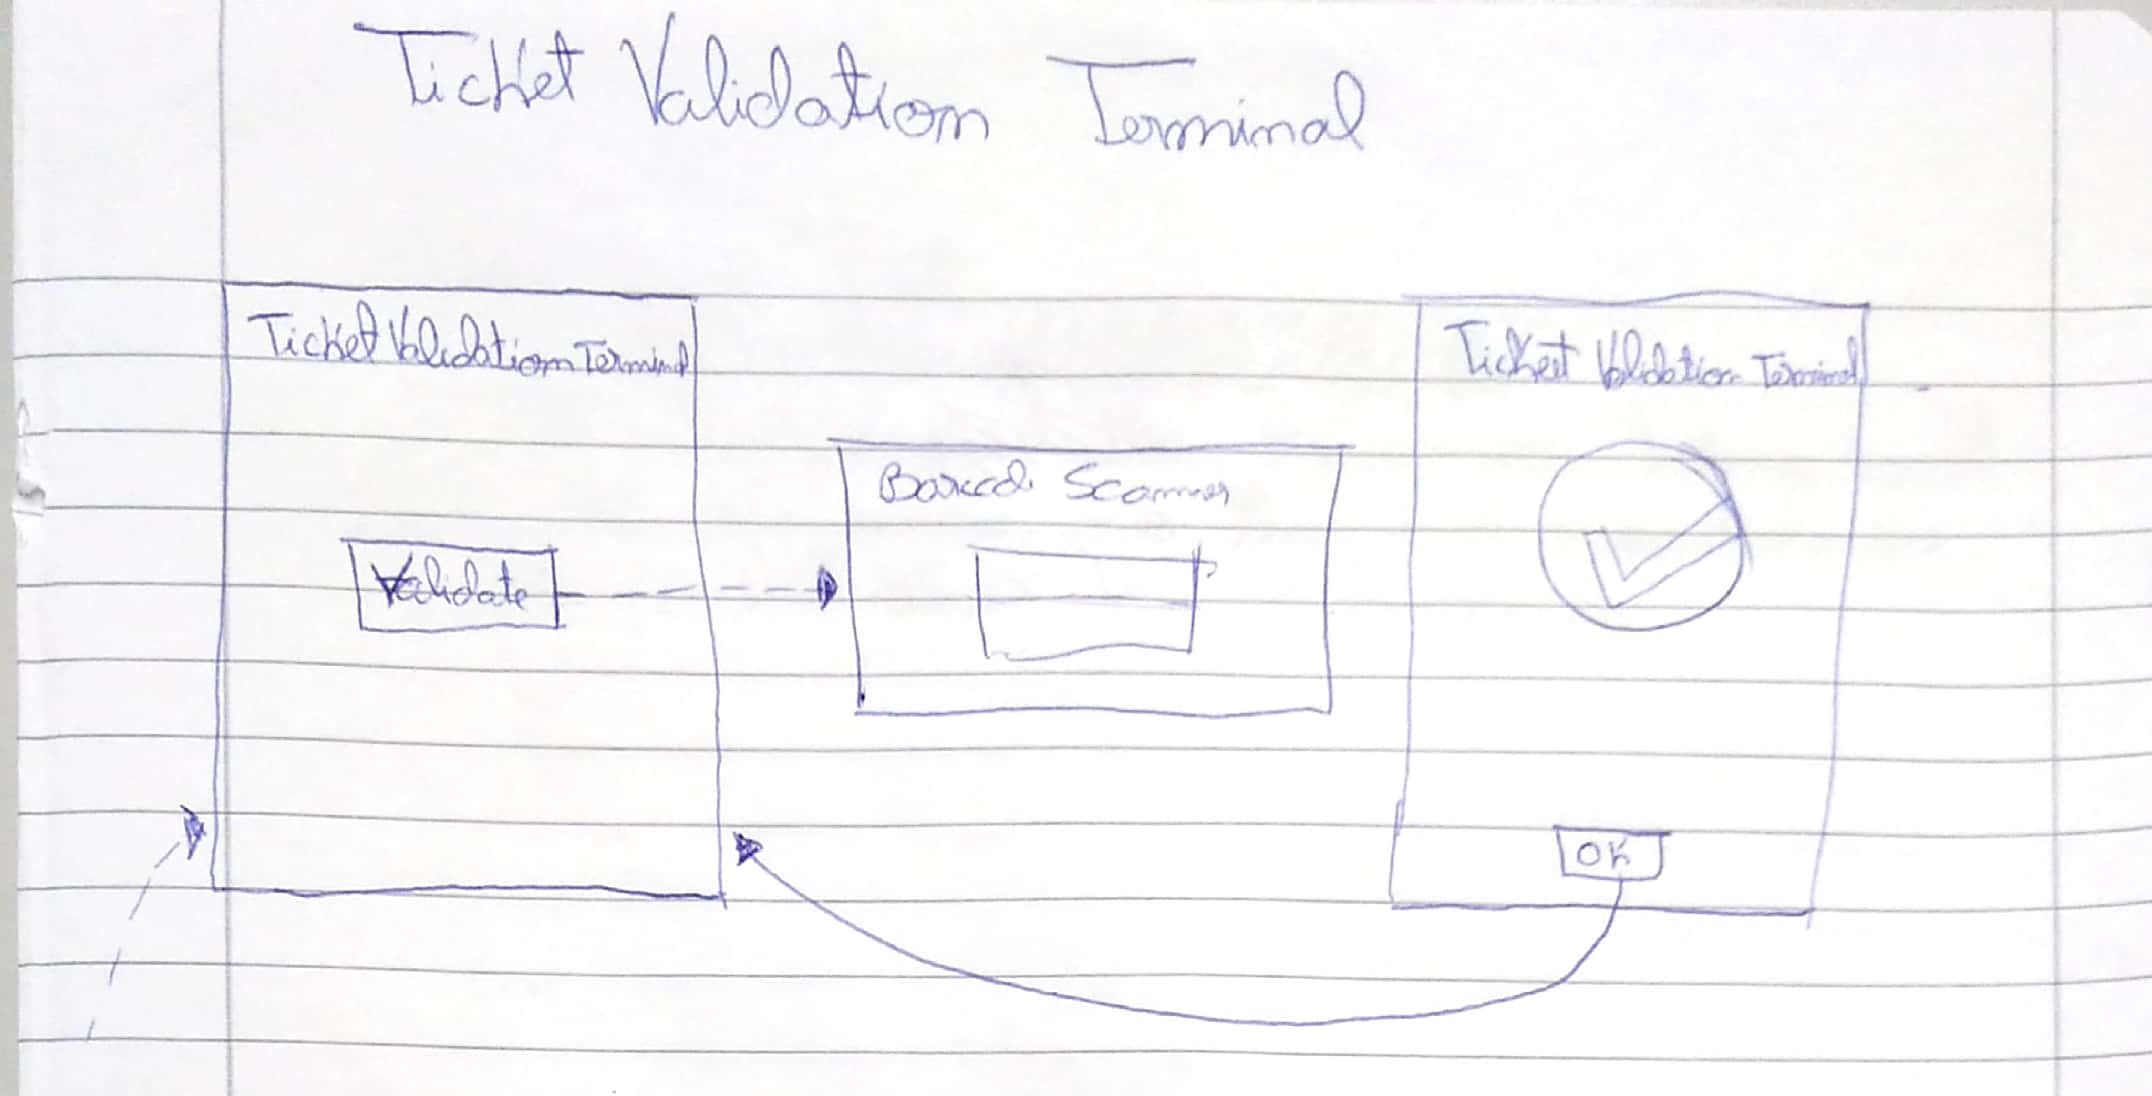 Ticket Validation Terminal
Ticket Validation Terminal
Validate
Barcode Scanner
Ticket Validation Terminal
OK